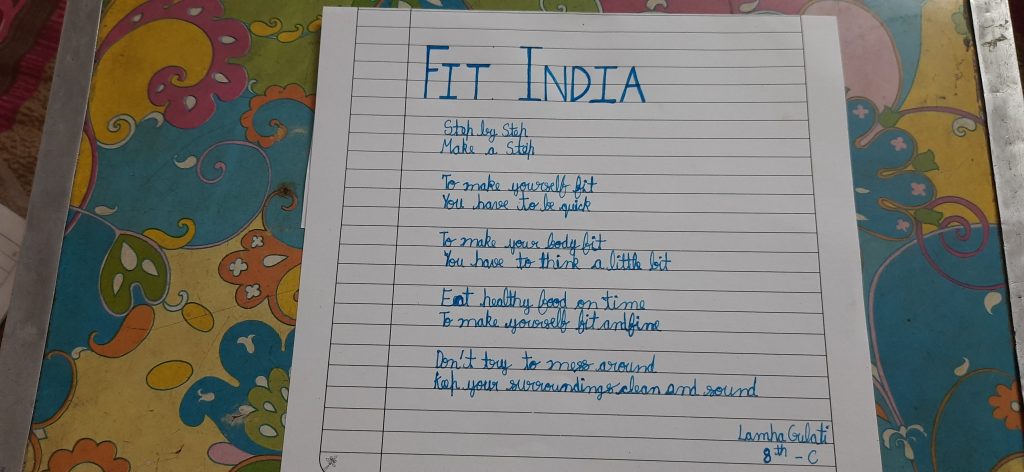 FIT INDIA
Step by Step
Make a Step
To make yourself fit
You have to be quick
To make your body fit
You have to think a little bit
Eat healthy food on time
To make yourself fit and fine
Don't try to mess around
Keep your surroundings clean and sound
Lamha Gulati
8th - C